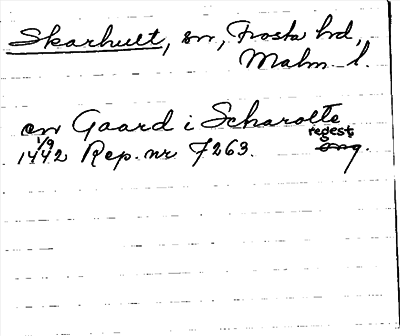 Skarhult, sn, Frosta hd,
Malm. l.
en Gaard i Scharolte
1/9 1442 Rep. nr 7263. regest
orig.